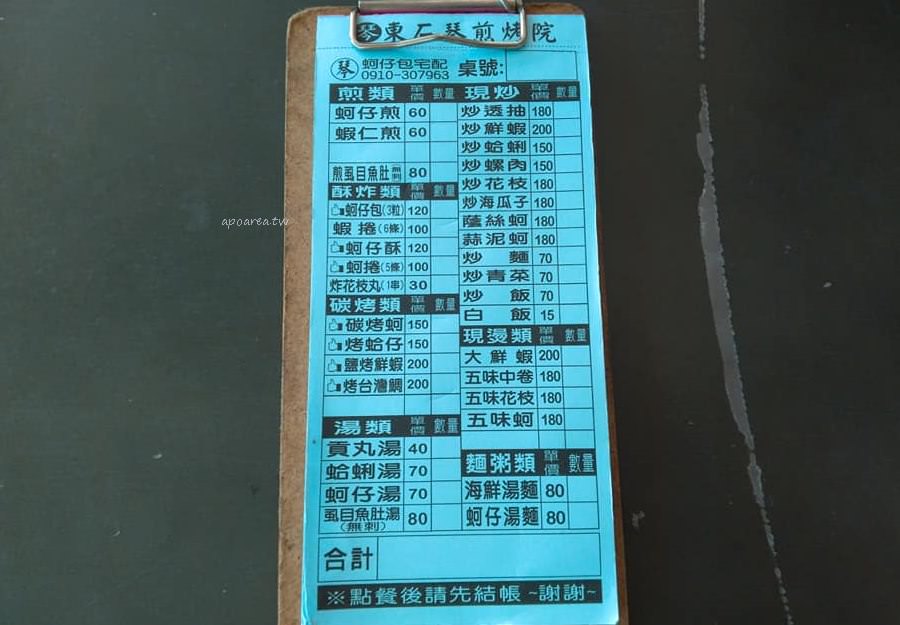 琴東石琴煎烤院
琴 蚵仔包宅配 0910-307963 桌號:
煎類 單價 數量
蚵仔煎 60
蝦仁煎 60
煎虱目魚肚 無刺 80
酥炸類 單價 數量
蚵仔包(3粒) 120
蝦捲(6條) 100
蚵仔酥 120
蚵捲(5條) 100
炸花枝丸(1串) 30
碳烤類 單價 數量
碳烤蚵 150
烤蛤仔 150
鹽烤鮮蝦 200
烤台灣鯛 200
湯類 單價 數量
貢丸湯 40
蛤蜊湯 70
蚵仔湯 70
虱目魚肚湯(無刺) 80
現炒 單價 數量
炒透抽 180
炒鮮蝦 200
炒蛤蜊 150
炒螺肉 150
炒花枝 180
炒海瓜子 180
蔭絲蚵 180
蒜泥蚵 180
炒麵 70
炒青菜 70
炒飯 70
白飯 15
現燙類 單價 數量
大鮮蝦 200
五味中卷 180
五味花枝 180
五味蚵 180
麵粥類 單價 數量
海鮮湯麵 80
蚵仔湯麵 80
合計
※點餐後請先結帳 ~謝謝~
apoarea.tw